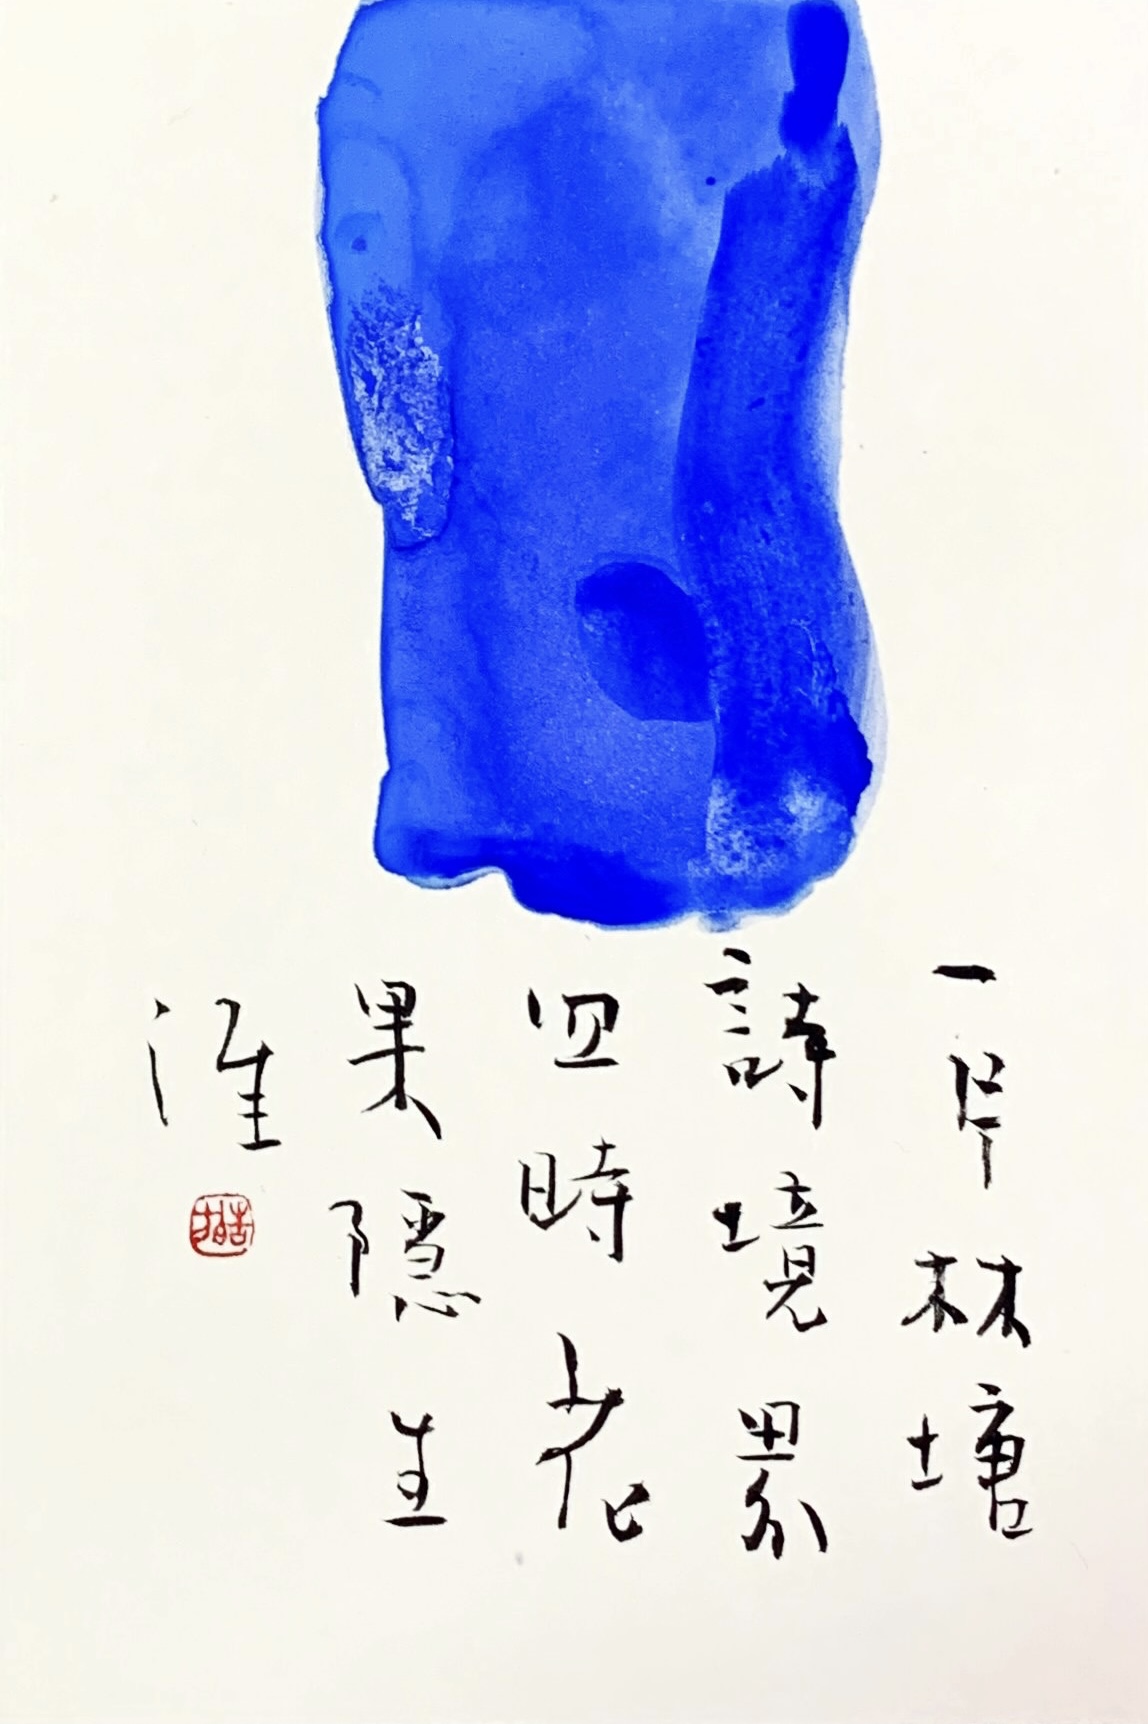 一片林塘
詩境界
四時花
果隱生
涯